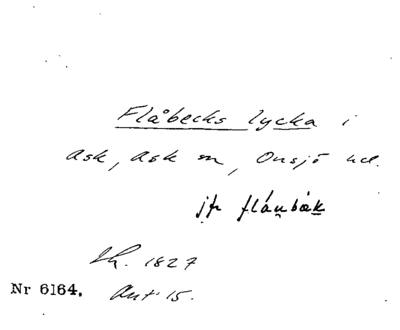 Flåbecks lycka i
Ask, Ask sn, Onsjö hd.
jfr flá̱u̱bäk
Lh. 1827
Nr 6164. Ant. 15.